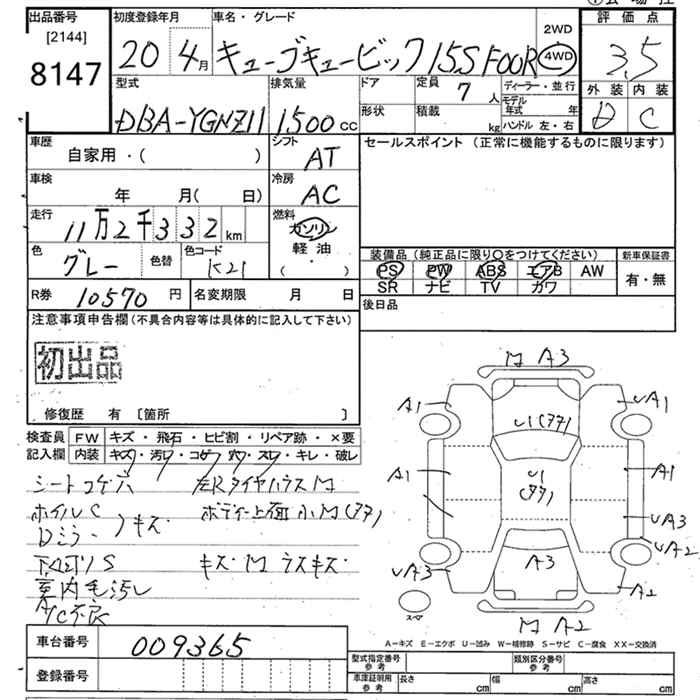 出品番号
[2144]
8147
初度登録年月
20 4月
車名・グレード
キューブキュービック 15S FOUR
2WD
4WD
評価点
3.5
外装 内装
D C
型式
DBA-YGNZ11
排気量
1500cc
ドア
形状
定員
7人
積載
kg
ディーラー・並行
モデル年式 年
ハンドル 左・右
車歴
自家用・( )
シフト
AT
セールスポイント (正常に機能するものに限ります)
車検
年 月( 日)
冷房
AC
走行
11万2千332km
燃料
ガソリン
軽油
・( )
色
グレー
色替
色コード
K21
装備品 (純正品に限り○をつけてください)
PS PW ABS エアB AW
SR ナビ TV カワ
新車保証書
有・無
R券
10570円
名変期限 月 日
後日品
注意事項申告欄 (不具合内容等は具体的に記入して下さい)
初出品
修復歴 有 [箇所 ]
検査員記入欄
FW キズ・飛石・ヒビ割・リペア跡・×要
内装 キズ・汚レ・コゲ・穴・スレ・キレ・破レ
シートコゲ穴
ホイルC
Dミラーキズ
下回リS
室内毛汚レ
A/C不良
左Rタイヤハウス M
ボディー上面 小M(アナ)
キズ M ラスキズ
M A3
A1
UA1
U1(アナ)
A1
U1
(アナ)
A1
UA3
UA2
UA3
A3
A2
M A2
スペア
A-キズ E-エクボ U-凹み W-補修跡 S-サビ C-腐食 XX-交換済
車台番号
009365
登録番号
型式指定番号 参考
類別区分番号 参考
車庫証明用 参考
長さ cm
幅 cm
高さ cm